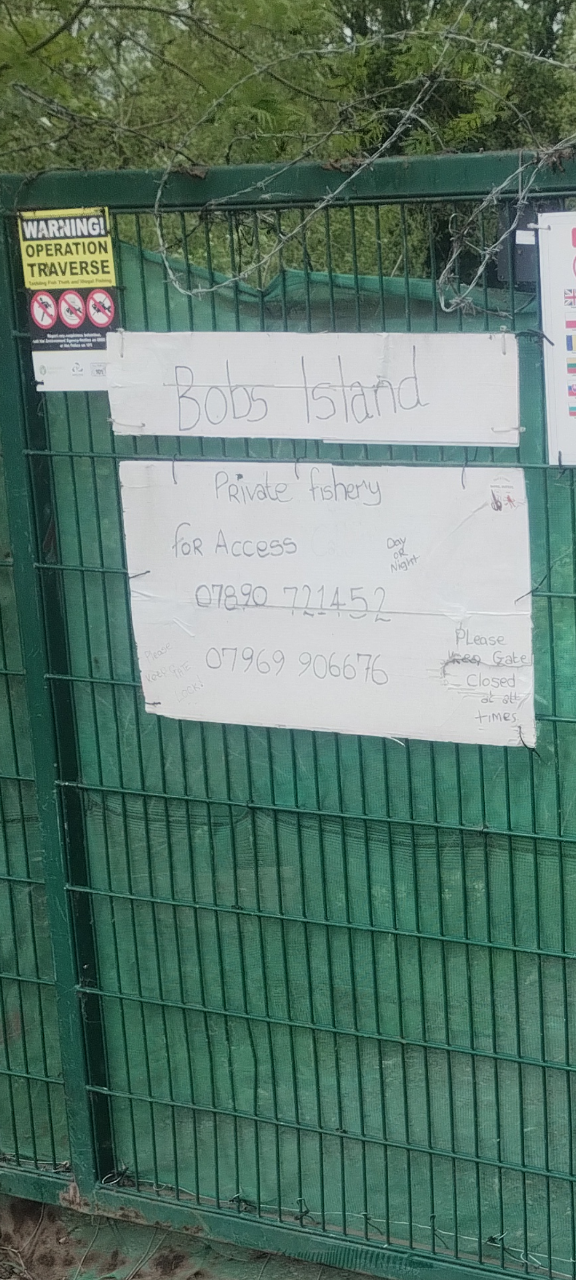 WARNING!
OPERATION
TRAVERSE
Tackling Fish Theft and Illegal Fishing
Bobs Island
Private fishery
for Access
Day
or
Night
07890 721452
07969 906676
Please
keep Gate
Closed
at all
times
Please